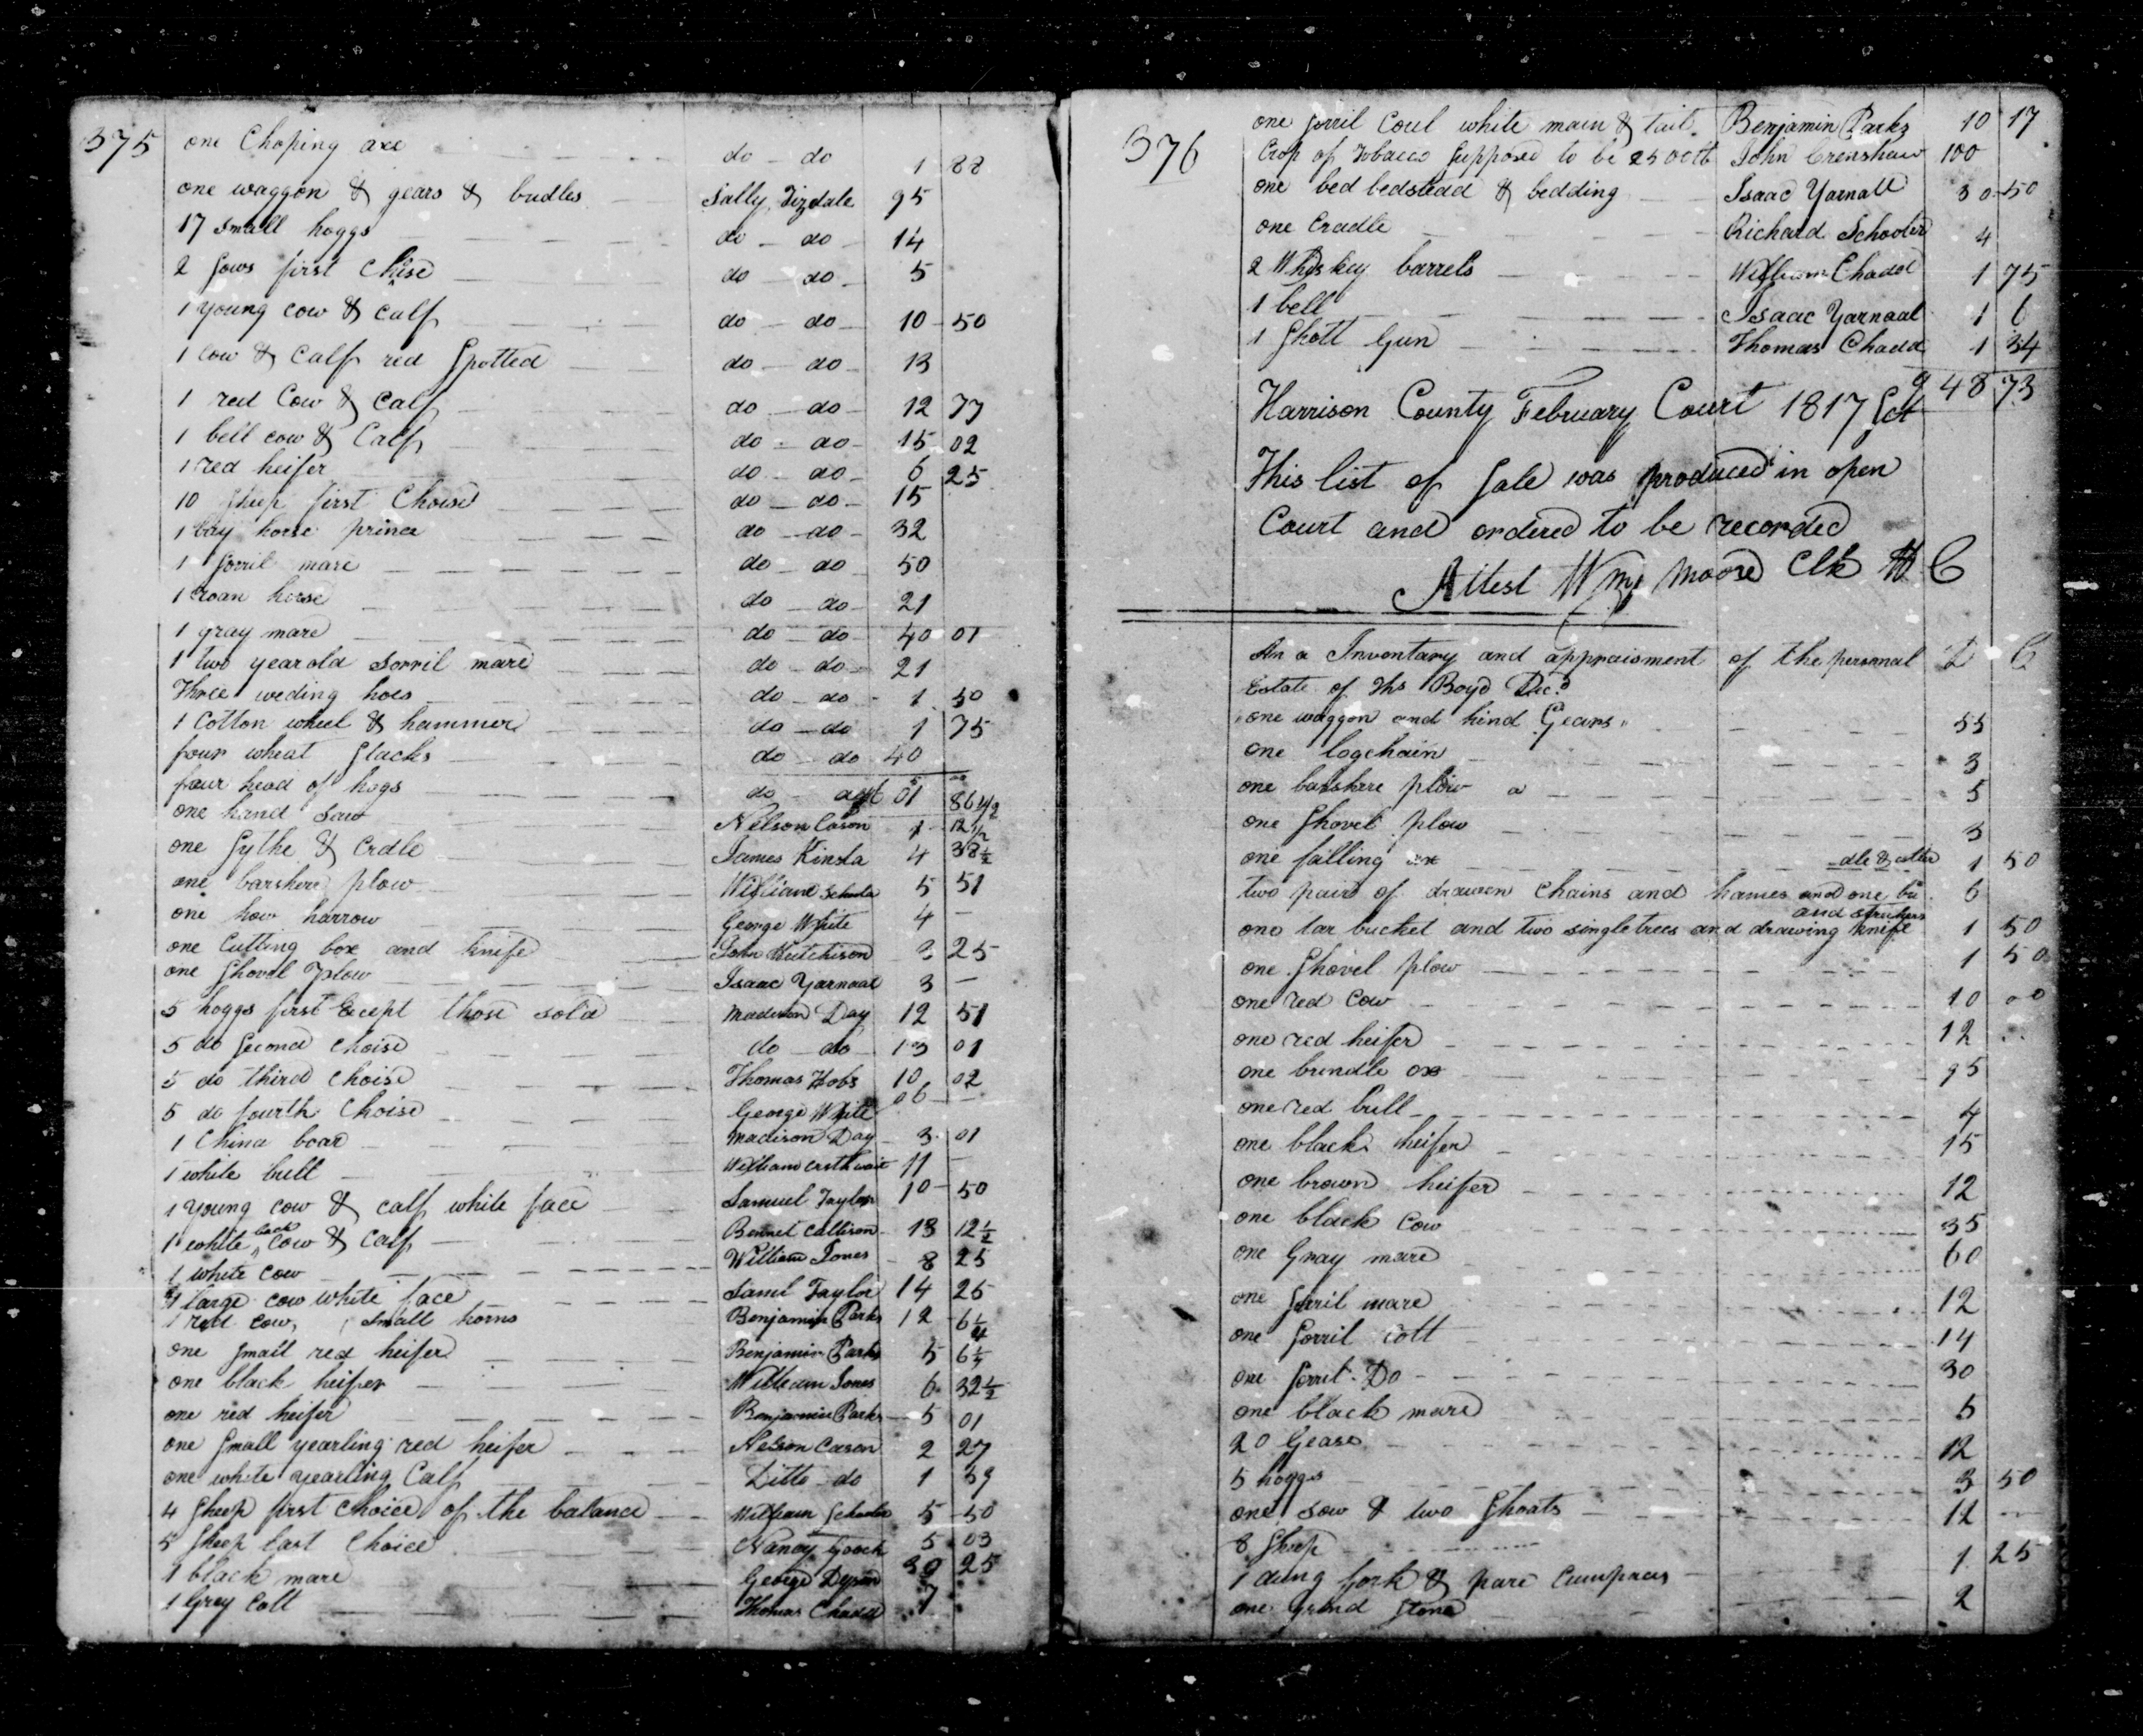 375
one Choping axe do do 1 88
one waggon & gears & bridles Sally Tizdale 95
17 small hoggs do do 14
2 Sows first Choise do do 5
1 young cow & calf do do 10 50
1 cow & calf red Spotted do do 13
1 red Cow & Calf do do 12 77
1 bell cow & Calf do do 15 02
1 red heifer do do 6 25
10 Sheep first Choise do do 15
1 bay horse prince do do 32
1 Sorril mare do do 50
1 roan horse do do 21
1 gray mare do do 40 01
1 two year old sorril mare do do 21
Three weding hoes do do 1 50
1 Cotton wheel & hammer do do 1 75
four wheat Stacks do do 40
four head of hogs do 01 86 1/2
one hand saw Nelson Cason 1 12 1/2
one Sythe & Crdle James Kinsla 4 38 1/2
one barshere plow William 5 51
one how harrow George White 4
one Cutting box and knife John Hutchison 3 25
one Shovel plow Isaac Yarnaal 3
5 hoggs first Except those sold Madison Day 12 51
5 do Second Choise do do 13 01
5 do third Choise Thomas Hobs 10 02
5 do fourth Choise George White 06
1 China boar Madison Day 3 01
1 white bull William 11
1 young cow & calf white face Samuel Taylor 10 50
1 white back cow & Calf Bennet Callison 13 12 1/2
1 white cow William Jones 8 25
1 large cow white face Saml Taylor 14 25
1 red cow, small horns Benjamin Parks 12 6 1/4
one Small red heifer Benjamin Parks 5 6 1/4
one black heifer William Jones 6 32 1/2
one red heifer Benjamin Parks 5 01
one Small yearling red heifer Nelson Cason 2 27
one white yearling Calf Ditto do 1 39
4 Sheep first choice of the balance William Schooler 5 50
5 Sheep last Choice Nancy Gooch 5 03
1 black mare George Dyson 30 25
1 Grey Colt Thomas Chadd 7
376
one Sorril Coul white main & tail Benjamin Parks 10 17
Crop of Tobacco Supposed to be 2500 lb John Crenshaw 100
one bed bedstead & bedding Isaac Yarnall 30 50
one Cradle Richard Schooler 4
2 Whiskey barrels William Chadd 1 75
1 bell Isaac Yarnaal 1 6
1 Shott Gun Thomas Chadd 1 34
948 73
Harrison County February Court 1817 Sct
This list of Sale was produced in open
Court and ordered to be recorded
Attest Wm Moore Clk H C
An a Inventary and appraisment of the personal D C
Estate of Ths Boyd Decd
one waggon and hind Gears 55
one logchain 3
one barshare plow 5
one Shovel plow 3
one falling ax 1 50
two pair of drawen Chains and hames and one bridle & collar 6
one tar bucket and two singletrees and drawing knife and 1 50
one Shovel plow 1 50
one red Cow 10 00
one red heifer 12
one brindle ox 25
one red bull 4
one black heifer 15
one brown heifer 12
one black Cow 35
one Gray mare 60
one Sorril mare 12
one Sorril Colt 14
one Sorril Do 30
one black mare 5
20 Gease 12
5 hoggs 3 50
one sow & two Shoats 12
8 Sheep
1 dung fork & pare Cumpases 1 25
one Grind Stone 2